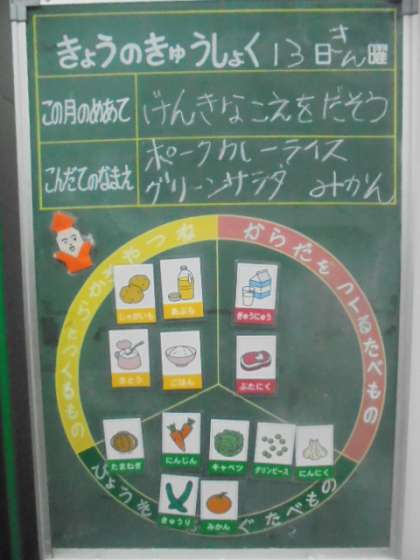 きょうのきゅうしょく 13日 きん曜
この月のめあて げんきなこえをだそう
こんだてのなまえ ポークカレーライス
グリーンサラダ みかん
ちからやねつ
になるもの
からだをつくるたべもの
じゃがいも あぶら ぎゅうにゅう
さとう ごはん ぶたにく
たまねぎ にんじん キャベツ グリンピース にんにく
きゅうり みかん
びょうき
ぐたべもの